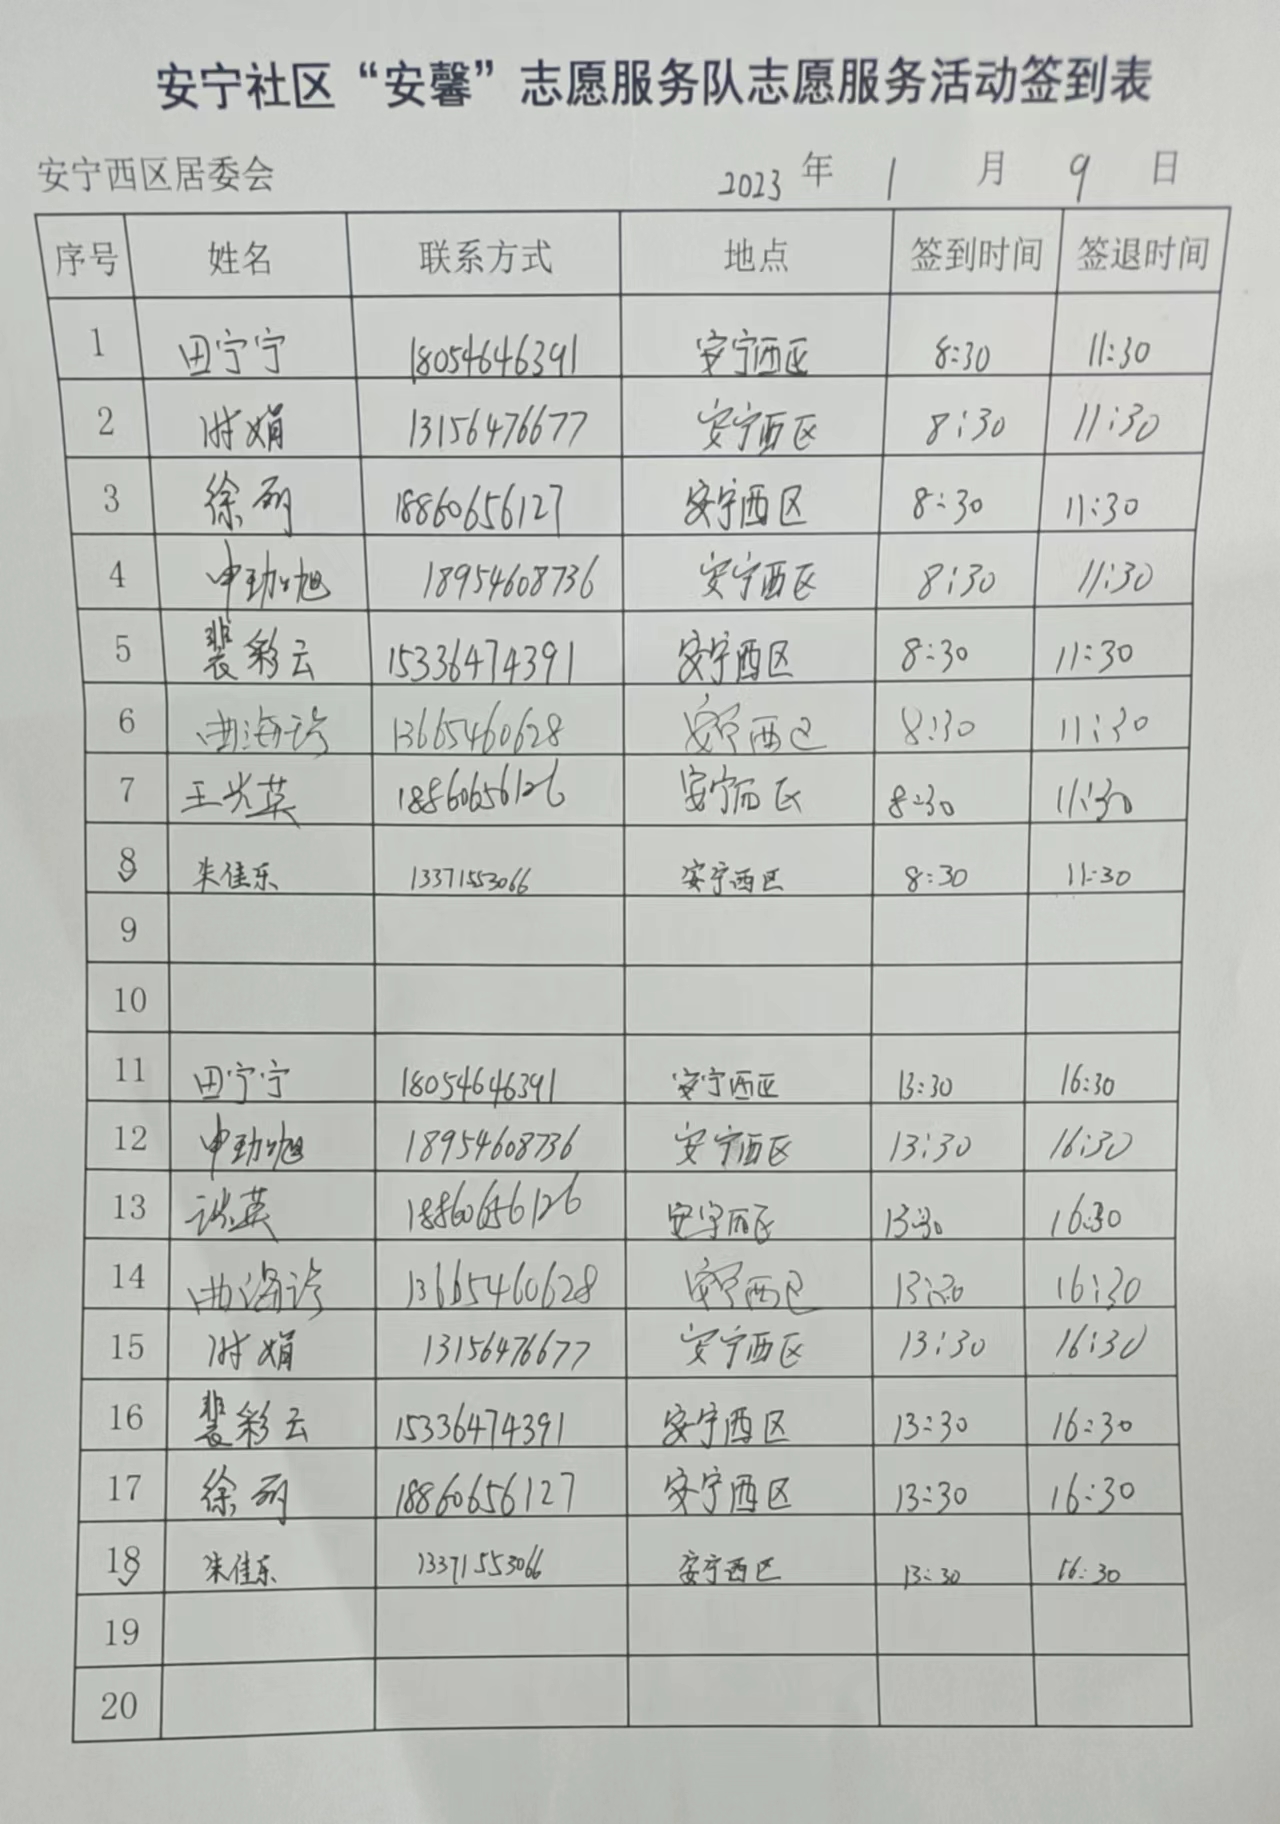 安宁社区“安馨”志愿服务队志愿服务活动签到表
安宁西区居委会 2023 年 1 月 9 日
序号 姓名 联系方式 地点 签到时间 签退时间
1 田宁宁 18054646391 安宁西区 8:30 11:30
2 时娟 13156476677 安宁西区 8:30 11:30
3 徐丽 18860656127 安宁西区 8:30 11:30
4 申劲旭 18954608736 安宁西区 8:30 11:30
5 裴彩云 15336474391 安宁西区 8:30 11:30
6 曲海珍 13665460628 安宁西区 8:30 11:30
7 王光英 18860656126 安宁西区 8:30 11:30
8 朱佳乐 13371553066 安宁西区 8:30 11:30
9
10
11 田宁宁 18054646391 安宁西区 13:30 16:30
12 申劲旭 18954608736 安宁西区 13:30 16:30
13 18860656126 安宁西区 13:30 16:30
14 曲海珍 13665460628 安宁西区 13:30 16:30
15 时娟 13156476677 安宁西区 13:30 16:30
16 裴彩云 15336474391 安宁西区 13:30 16:30
17 徐丽 18860656127 安宁西区 13:30 16:30
18 朱佳乐 13371553066 安宁西区 13:30 16:30
19
20